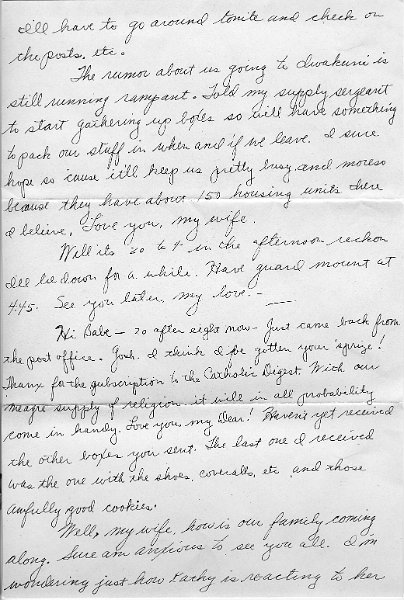 I'll have to go around tonite and check on
the posts, etc.
The rumor about us going to Iwakuni is
still running rampant. Told my supply sergeant
to start gathering up boxes so will have something
to pack our stuff in when and if we leave. I sure
hope so 'cause it'll keep us pretty busy and moreso
because they have about 150 housing units there
I believe. Love you, my wife.
Well its 20 to 4 in the afternoon reckon
I'll lie down for a while. Have guard mount at
4:45. See you later, my love. —
Hi Babe — 20 after eight now — Just came back from
the post office. Gosh, I think I've gotten your 'sprize!
Thanx for the subscription to the Catholic Digest. With our
meagre supply of religion it will in all probability
come in handy. Love you, my Dear! Haven't yet received
the other boxes you sent. The last one I received
was the one with the shoes, coveralls, etc and those
awfully good cookies.
Well, my wife, how is our family coming
along. Sure am anxious to see you all. I'm
wondering just how Cathy is reacting to her